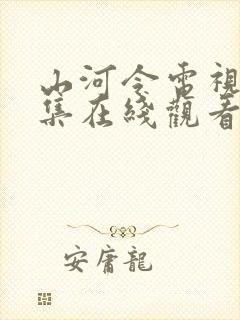 山河令電視
集在綫觀看
安庸龍